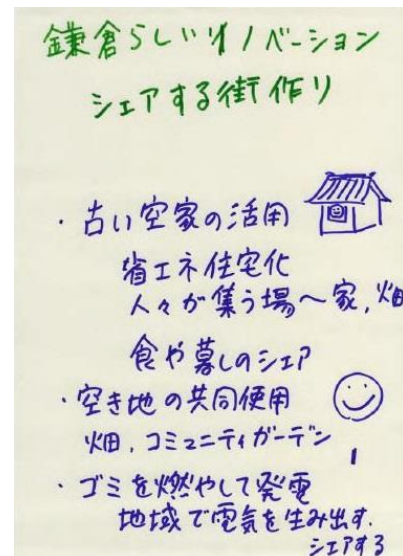 鎌倉らしいリノベーション
シェアする街作り
・古い空家の活用
省エネ住宅化
人々が集う場～家,畑
食や暮しのシェア
・空き地の共同使用
畑,コミュニティガーデン
・ゴミを燃やして発電
地域で電気を生み出す.
シェアする